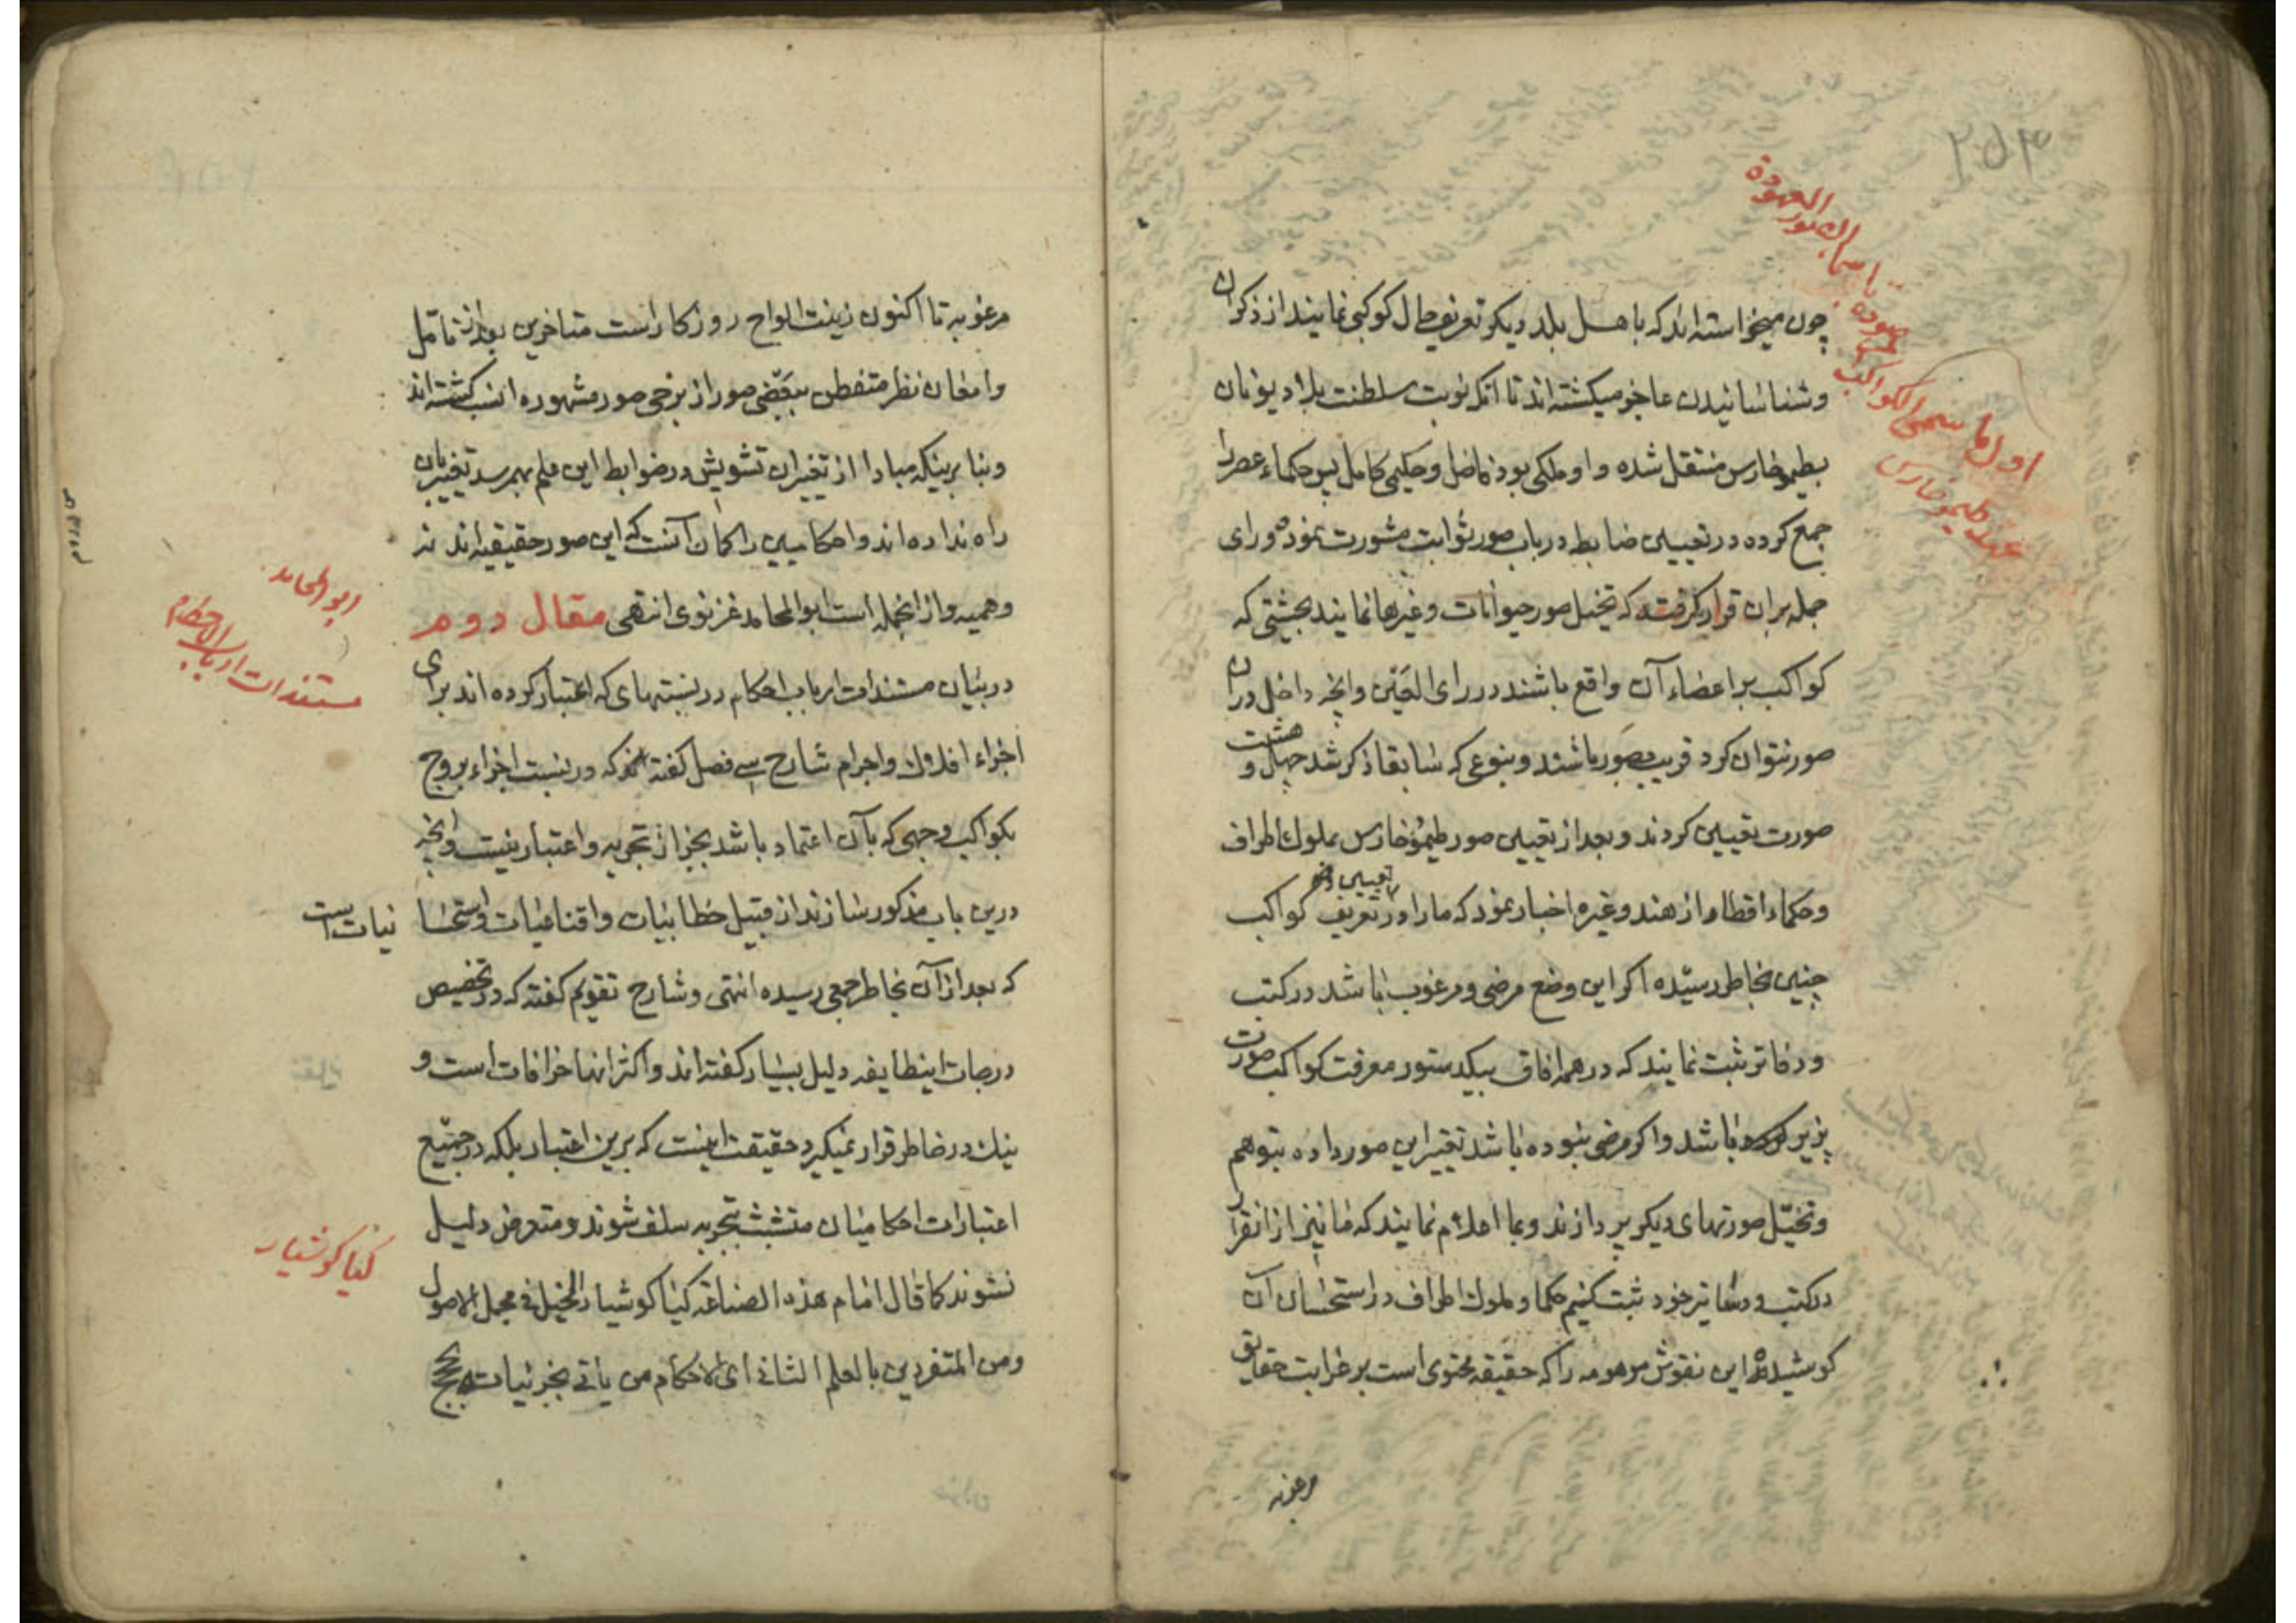 ۲۵۳
اول ما سمی الکواکب
المعهودة
چون میخواسته‌اند که باهل بلد دیگر تعریف حال کوکبی نمایند از ذکر آن
و شناسانیدن عاجز میکشته‌اند تا آنکه نوبت سلطنت بلاد یونان
بطیموخارس منتقل شده و او ملکی بود فاضل و حکیمی کامل پس حکماء عصر را
جمع کرده در تعیین ضابطه در باب صور ثوابت مشورت نموده و رای
جمله بران قرار گرفته که تخیل صور حیوانات و غیرها نمایند بحیثیتی که
کواکب بر اعضاء آن واقع باشند در رای العین و انچه داخل دران
صور نتوان کرد قریب بصور باشند و بنوعی که سابقا ذکر شد چهل و هشت
صورت تعیین کردند و بعد از تعیین صور طیموخارس بملوک اطراف
و حکماء اقطار از هند و غیره اخبار نمود که ما را در تعریف کواکب
چنین بخاطر رسیده اگر این وضع مرضی و مرغوب باشد در کتب
و دفاتر ثبت نمایند که در همه افاق بیکدستور معرفت کواکب صورت
پزیر باشد و اگر مرضی نبوده باشد تغییر این صور داده بتوهم
و تخیل صورتهای دیگر پردازند و بما اعلام نمایند که ما نیز از انقرار
در کتب و دفاتر خود ثبت کنیم حکما و ملوک اطراف در استحسان آن
کوشیده این نقوش موهومه را که حقیقه محتوی است بر غرایب حقایق
مرغوبه
مرغوبه تا اکنون زینت الواح روزکار است متاخرین بعد از تامل
و امعان نظر متفطن ببعضی صور از برخی صور مشهوره انسب کشته‌اند
و بنا برینکه مبادا از تغییر ان تشویش در ضوابط این علم بهم رسد تغییر بان
راه نداده‌اند و احکامیین را کمان آنست که این صور حقیقیه‌اند نه
وهمیه و از انجمله است ابو المحامد غزنوی انتهی مقال دوم
ابو المحامد
در بیان مستندات ارباب احکام در نسبتهای که اعتبار کرده‌اند برای
مستندات ارباب الاحکام
اجزاء افلاک و اجرام شارح سی فصل کفته که در نسبت اجزاء بروج
بکواکب وجهی که بآن اعتماد باشد بجز از تجربه و اعتبار نیست و انچه
درین باب مذکور سازند از قبیل خطابیات و اقناعیات و استحسا نیات است
که بعد از آن بخاطر جمعی رسیده انتهی و شارح تقویم کفته که در تخصیص
درجات اینطایفه دلیل بسیار کفته‌اند و اکثر انها خرافات است و
نیک در خاطر قرار نمیکیرد حقیقت اینست که برین اعتبار بلکه در جمیع
اعتبارات احکامیان متشبث بتجربه سلف شوند و متعرض دلیل
نشوند کما قال امام هذه الصناعه کیا کوشیار الجیلی فی مجمل الاصول
کیا کوشیار
و من المتفردین بالعلم الثانی ای الاحکام من یاتی بجزئیات بحجج